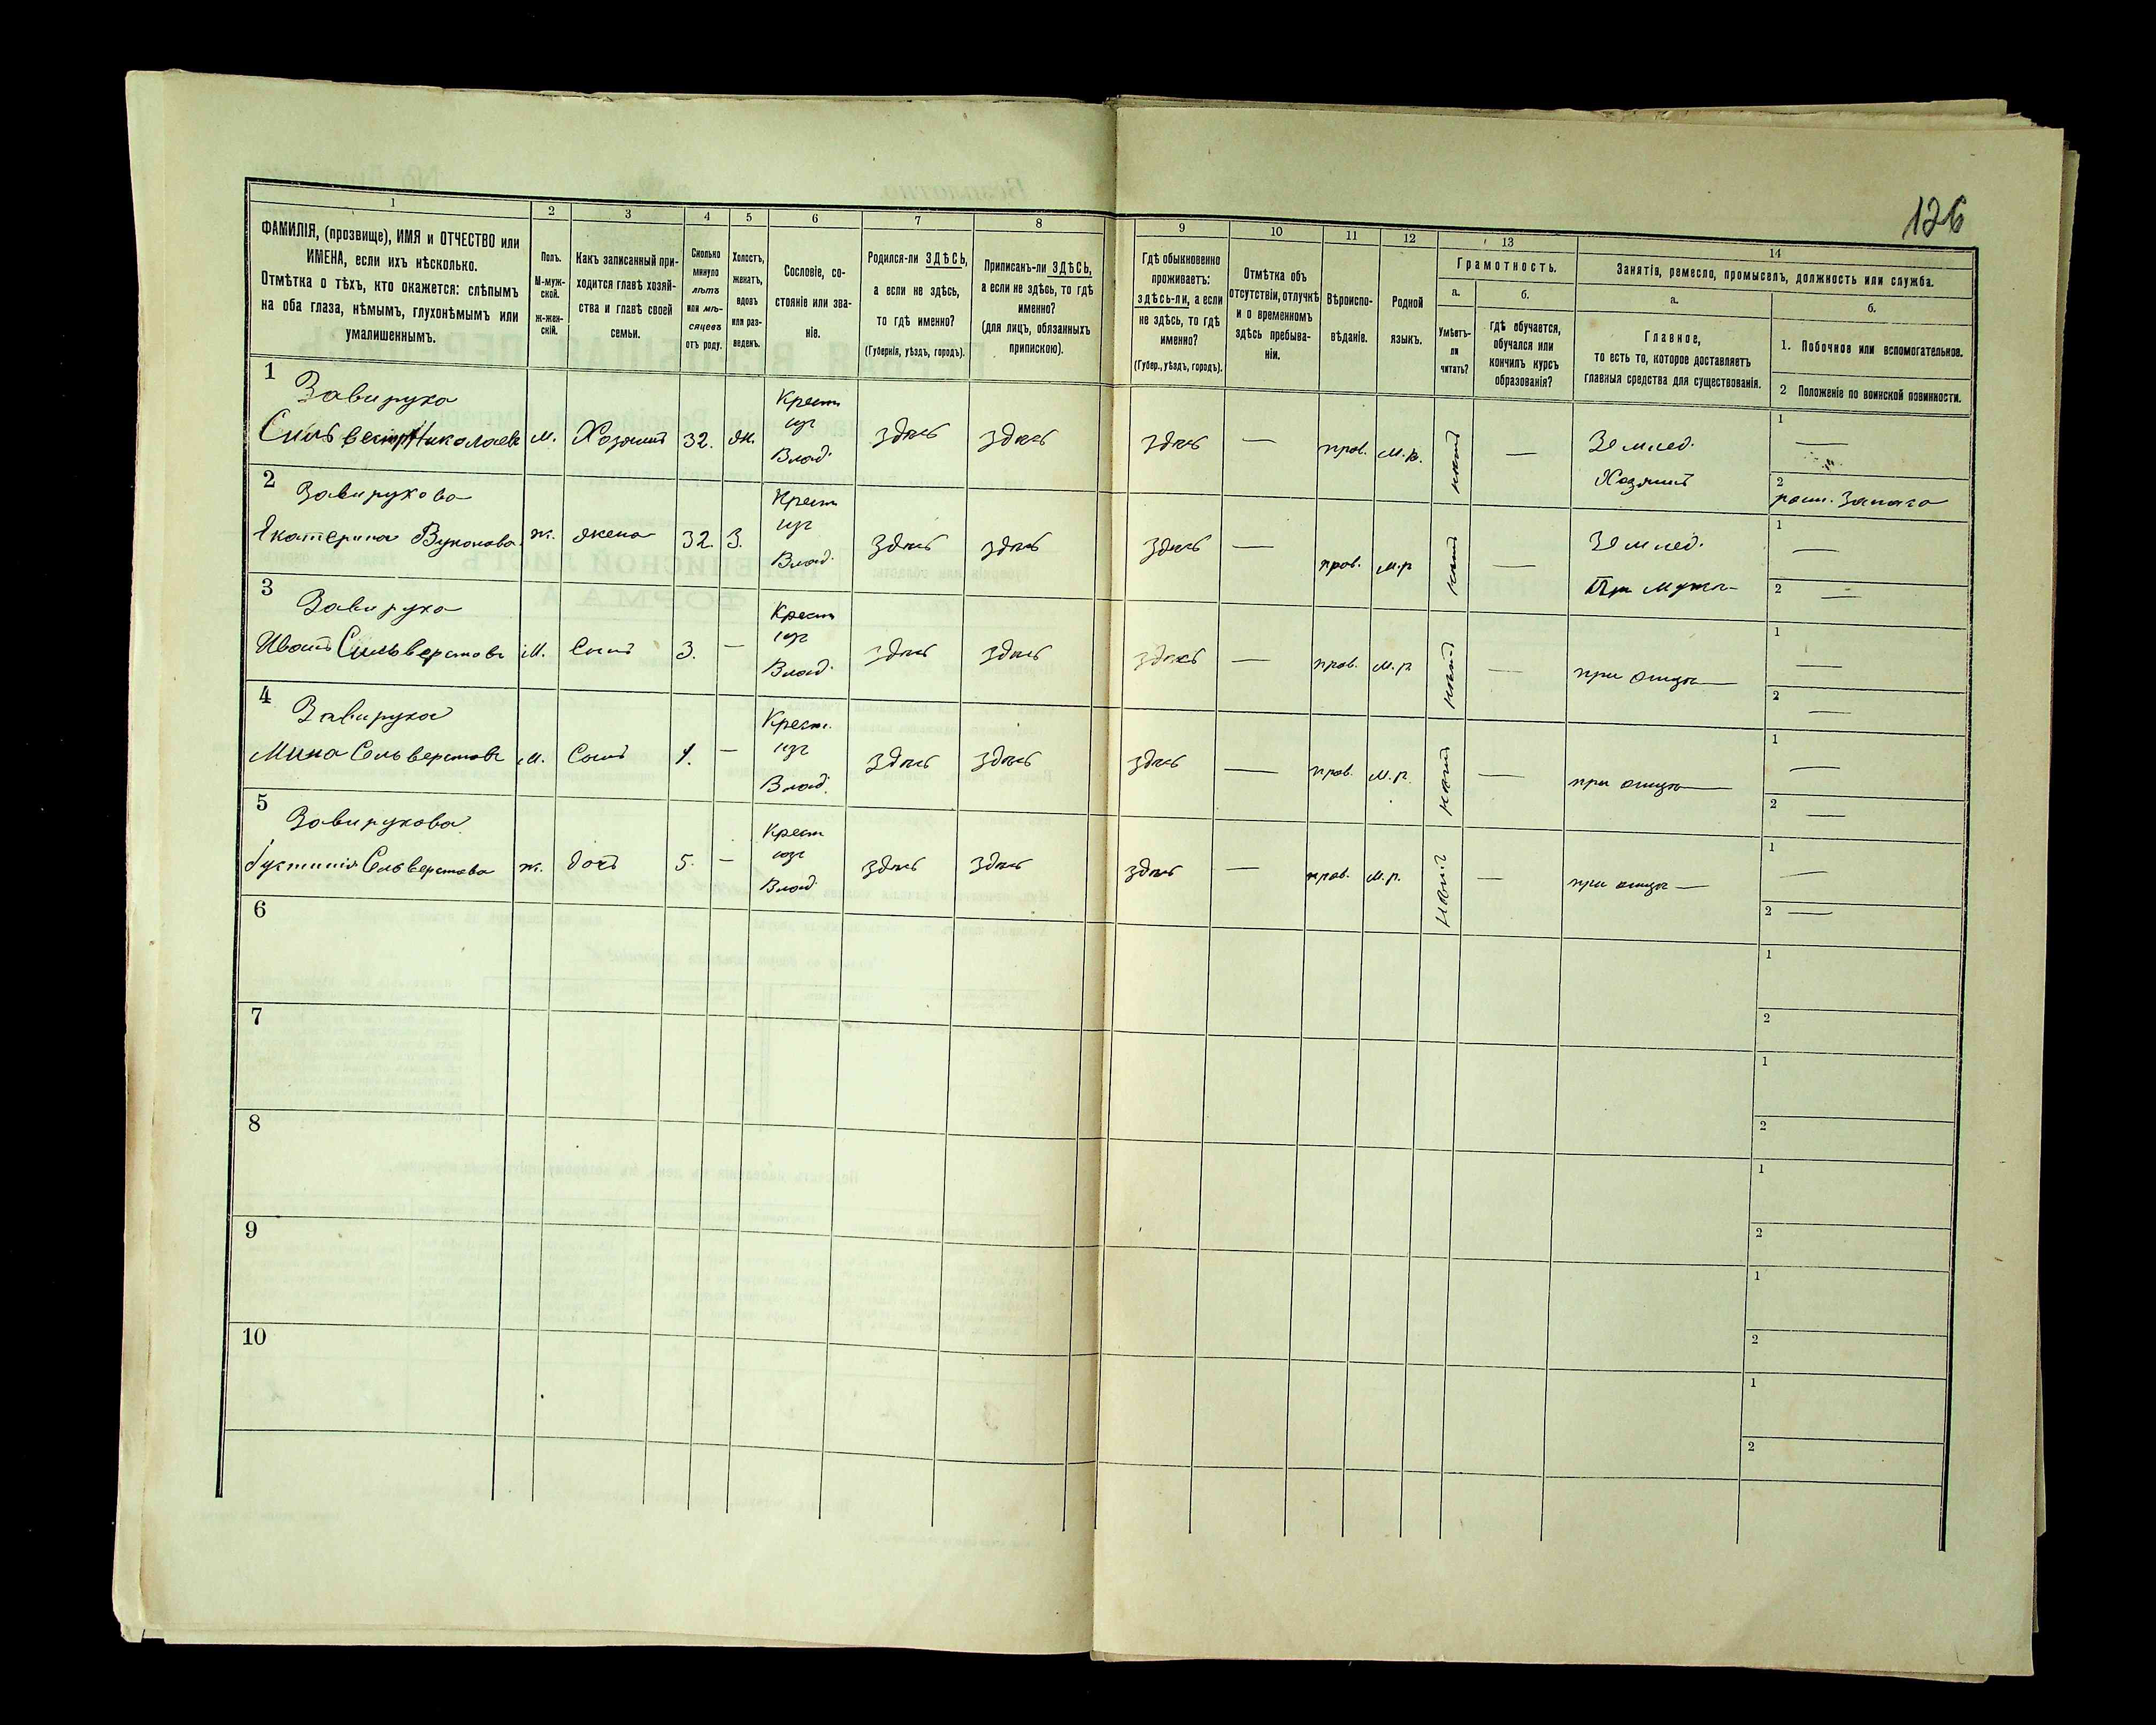 126
1
2
3
4
5
6
7
8
9
10
11
12
13
14
ФАМИЛІЯ, (прозвище), ИМЯ и ОТЧЕСТВО или
ИМЕНА, если ихъ нѣсколько.
Отмѣтка о тѣхъ, кто окажется: слѣпымъ
на оба глаза, нѣмымъ, глухонѣмымъ или
умалишеннымъ.
Полъ.
М-муж-
ской.
Ж-жен-
скій.
Какъ записанный при-
ходится главѣ хозяй-
ства и главѣ своей
семьи.
Сколько
минуло
лѣтъ
или мѣ-
сяцевъ
отъ роду.
Холостъ,
женатъ,
вдовъ
или раз-
веденъ.
Сословіе, со-
стояніе или зва-
ніе.
Родился-ли ЗДѢСЬ,
а если не здѣсь,
то гдѣ именно?
(Губернія, уѣздъ, городъ).
Приписанъ-ли ЗДѢСЬ,
а если не здѣсь, то гдѣ
именно?
(для лицъ, обязанныхъ
припискою).
Гдѣ обыкновенно
проживаетъ:
здѣсь-ли, а если
не здѣсь, то гдѣ
именно?
(Губер., уѣздъ, городъ).
Отмѣтка объ
отсутствіи, отлучкѣ
и о временномъ
здѣсь пребыва-
ніи.
Вѣроиспо-
вѣданіе.
Родной
языкъ.
Грамотность.
а.
Умѣетъ-
ли
читать?
б.
гдѣ обучается,
обучался или
кончилъ курсъ
образованія?
Занятія, ремесло, промыселъ, должность или служба.
а.
Главное,
то есть то, которое доставляетъ
главныя средства для существованія.
б.
1. Побочное или вспомогательное.
2 Положеніе по воинской повинности.
1
Завируха
Сильвестр Николаевъ
м.
Хозяинъ
32.
жн.
Крест
изъ
Влад.
здѣсь
здѣсь
здѣсь
—
прав.
м.р.
нѣтъ
—
Землед.
Хозяинъ
1 —
2
2
Завирухова
Екатерина
ж.
жена
32.
З.
Крест
изъ
Влад.
здѣсь
здѣсь
здѣсь
—
прав.
м.р
нѣтъ
—
Землед.
При мужѣ
1 —
2 —
3
Завируха
Иванъ Сильверстовъ
М.
Сынъ
3.
—
Крест
изъ
Влад.
здѣсь
здѣсь
здѣсь
—
прав.
м.р
нѣтъ
—
при отцѣ —
1 —
2 —
4
Завируха
Мина Сельверстовъ
м.
Сынъ
1.
—
Крест.
изъ
Влад.
здѣсь
здѣсь
здѣсь
—
прав.
м.р.
нѣтъ
—
при отцѣ —
1 —
2 —
5
Завирухова
Іустинія Сельверстова
ж.
дочъ
5.
—
Крест
изъ
Влад.
здѣсь
здѣсь
здѣсь
—
прав.
м.р.
нѣтъ
—
при отцѣ —
1 —
2 —
6
1
2
7
1
2
8
1
2
9
1
2
10
1
2